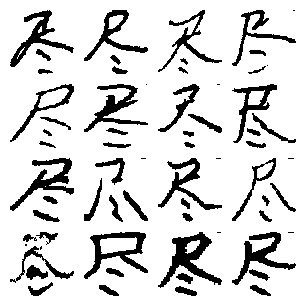 尽尽尽尽
尽尽尽尽
尽尽尽尽
尽尽尽尽